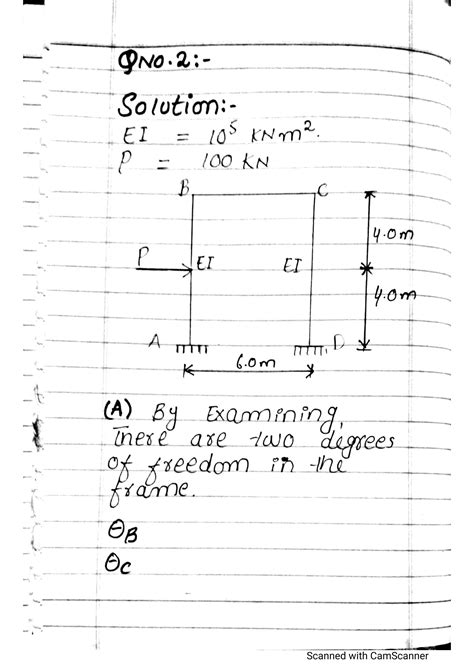 QNO.2:-
Solution:-
EI = 10⁵ KNm².
P = 100 KN
B C
4.0m
P EI EI
4.0m
A D
6.0m
(A) By Examining,
There are two degrees
of freedom in the
frame.
θB
θC
Scanned with CamScanner